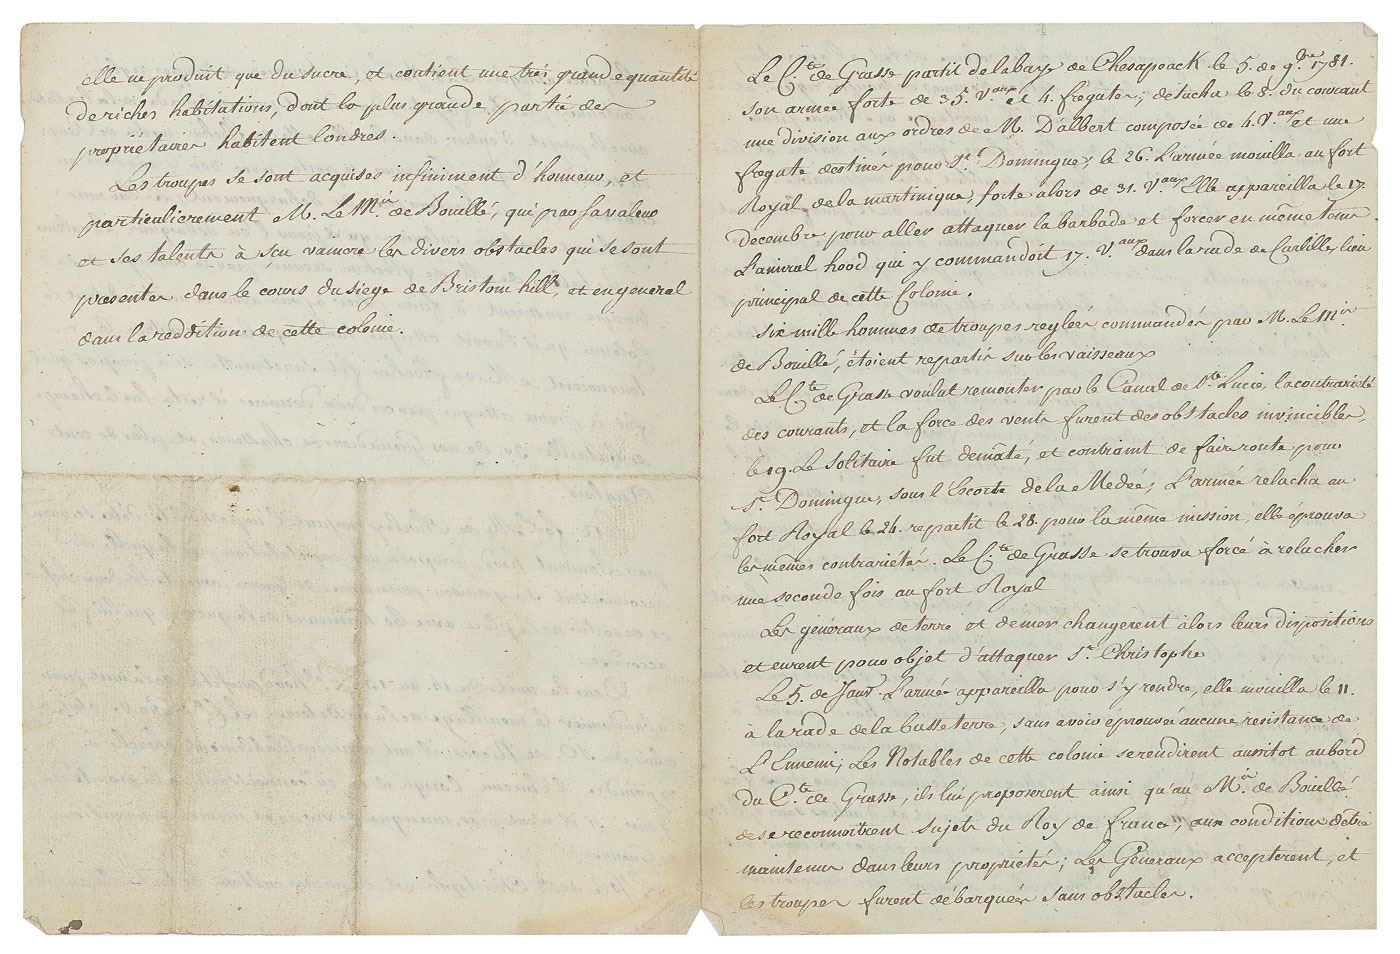 elle ne produit que du sucre, et contient une trés grande quantité
de riches habitations, dont la plus grande partie des
propriétaires habitent londres.
Les troupes se sont acquises infiniment d'honneur, et
particulierement M. Le M.is de Bouillé, qui par sa valeur
et ses talents à sçu vaincre les divers obstacles qui se sont
presentés dans le cours du siege de Bristom hill, et en general
dans la reddition de cette colonie.
Le C.te de Grasse partit de la baye de Chesapeack le 5. de 9.bre 1781.
son armée forte de 35. V.aux et 4. frégates; detacha le 8. du courant
une division aux ordres de M. D'albert composée de 4. V.aux et une
fregate destinés pour St. Domingue; le 26. L'armée mouilla au fort
Royal de la martinique, forte alors de 31. V.aux Elle appareilla le 17.
decembre pour aller attaquer la barbade et forcer en même tems
L'amiral hood qui y commandoit 17. V.aux dans la rade de Carlille, lieu
principal de cette Colonie.
six mille hommes de troupes reglées commandés par M. Le M.is
de Bouillé, étoient repartis sur les vaisseaux
Le C.te de Grasse voulut remonter par le Canal de S.te Lucie, la contrarieté
des courants, et la force des vents furent des obstacles invincibles,
le 19. Le solitaire fut dematé, et contraint de faire route pour
St. Domingue, sous l'Escorte de la Medée; L'armée relacha au
fort Royal le 24. repartit le 28. pour la même mission, elle éprouva
les mêmes contrarietés. Le C.te de Grasse se trouva forcé à relacher
une seconde fois au fort Royal
Les généraux de terre et de mer changerent alors leurs dispositions
et eurent pour objet d'attaquer St. Christophe
Le 5. de Janr. L'armée appareilla pour s'y rendre, elle mouilla le 11.
à la rade de la basse terre, sans avoir éprouvée aucune resistance de
L'Ennemi; Les Notables de cette colonie se rendirent aussitot au bord
du C.te de Grasse, ils lui proposerent ainsi qu'au M.is de Bouillé
de se reconnoitrent sujets du Roy de france, aux conditions d'être
maintenus dans leurs propriétés; Les Géneraux accepterent, et
les troupes furent débarquées sans obstacles.